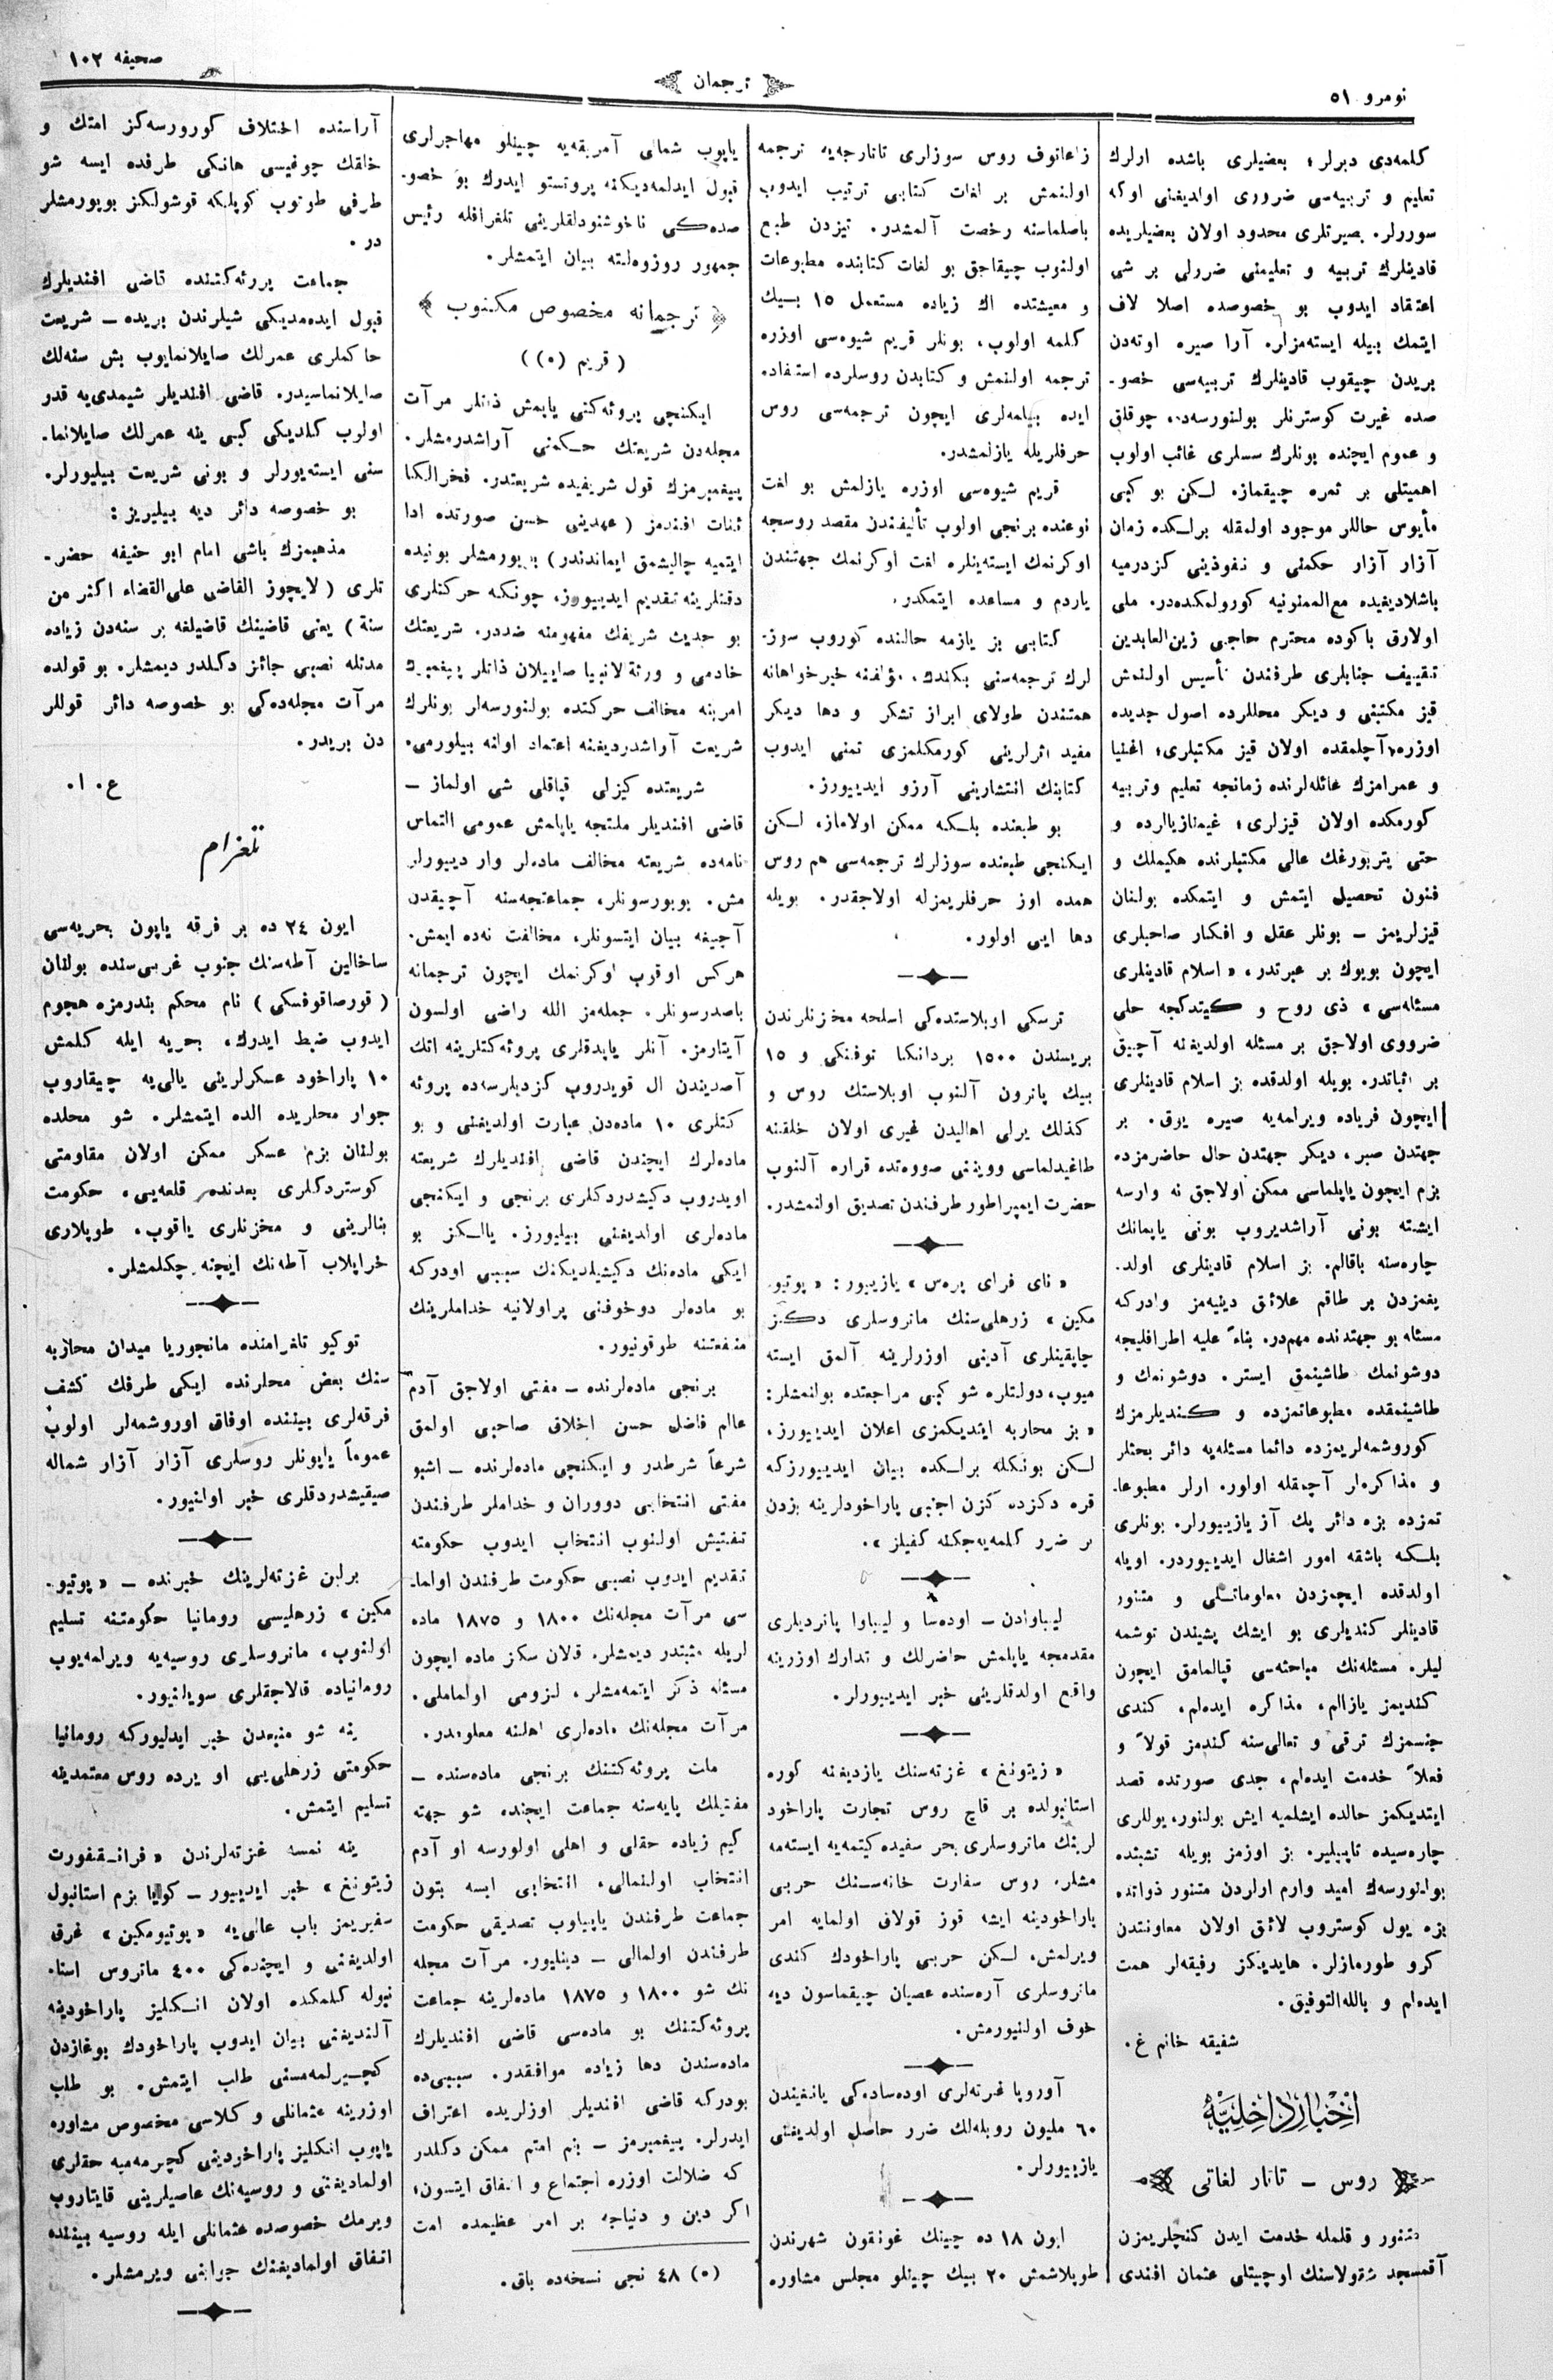 نومرو ٥١
ترجمان
صحیفه ١٠٢
كلمه‌دی دیرلر؛ بعضیلری باشده ارلرك
تعلیم و تربیه‌سی ضروری اولدیغنی اوكه
سوررلر. بصیرتلری محدود اولان بعضیلریده
قادینلرك تربیه و تعلیمنی ضررلی بر شی
اعتقاد ایدوب بو خصوصده اصلا لاف
ایتمك بیله ایسته‌مزلر. آرا صیره اوته‌دن
بریدن چیقوب قادینلرك تربیه‌سی خصو-
صده غیرت كوسترنلر بولنورسه‌ده، چوقلق
و عموم ایچنده بونلرك سسلری غائب اولوب
اهمیتلی بر ثمره چیقماز. لكن بو كبی
مأیوس حاللر موجود اولمقله برلكده زمان
آزار آزار حكمنی و نفوذینی كزدرمیه
باشلادیغیده مع‌الممنونیه كورولمكده‌در. ملی
اولارق باكوده محترم حاجی زین‌العابدین
تقییف جنابلری طرفندن تأسیس اولنمش
قیز مكتبنی و دیكر محللرده اصول جدیده
اوزره آچلمقده اولان قیز مكتبلری؛ اغنیا
و عمرامزك عائله‌لرنده زمانجه تعلیم وتربیه
كورمكده اولان قیزلری؛ غیمنازیالرده و
حتی پتربورغك عالی مكتبلرنده هكیملك و
فنون تحصیل ایتمش و ایتمكده بولنان
قیزلریمز – بونلر عقل و افكار صاحبلری
ایچون بویوك بر عبرتدر، «اسلام قادینلری
مسئله‌سی» ذی روح و كیتدكجه حلی
ضرووی اولاجق بر مسئله اولدیغنه آچیق
بر اثباتدر. بویله اولدقده بز اسلام قادینلری
ایچون فریاده ویرلمه‌یه صیره یوق. بر
جهتدن صبر، دیكر جهتدن حال حاضرمزده
بزم ایچون یاپلماسی ممكن اولاجق نه وارسه
ایشته بونی آراشدیروب بونی یاپمانك
چاره‌سنه باقالم. بز اسلام قادینلری اولد.
یغمزدن بر طاقم علائق دینیه‌مز واردركه
مسئله بو جهتدنده مهم‌در. بناءً علیه اطرافلیجه
دوشونمك طاشینمق ایستر. دوشونمك و
طاشینمقده مطبوعاتمزده و كندیلرمزك
كوروشمه‌لریمزده دائما مسئله‌یه دائر بحثلر
و مذاكره‌لر آچمقله اولور. ارلر مطبوعا.
تمزده بزه دائر پك آز یازییورلر. بونلری
بلكه باشقه امور اشغال ایدییوردر. اویله
اولدقده ایچمزدن معلوماتلی و متنور
قادینلر كندیلری بو ایشك پشیندن توشمه
لیلر. مسئله‌نك مباحثه‌سی قپالمامق ایچون
كندیمز یازالم، مذاكره ایده‌لم، كندی
جنسمزك ترقی و تعالی‌سنه كندمز قولاً و
فعلاً خدمت ایده‌لم، جدی صورتده قصد
ایتدیكمز حالده ایشلمیه ایش بولنور، یوللری
چاره‌سیده تاپیلیر. بز اوزمز بویله تشبثده
بولنورسه‌ك امید وارم ارلردن متنور ذواتده
بزه یول كوستروب لائق اولان معاونتدن
كرو طورمازلر. هایدیكز رفیقه‌لر همت
ایده‌لم و بالله‌التوفیق.
شفیقه خانم غ.
اخبار داخلیه
روس – تاتار لغاتی
متنور و قلمله خدمت ایدن كنجلریمزن
آقمسجد شقولاسنك اوچیتلی عثمان افندی
زاعاتوف روس سوزلری تاتارجه‌یه ترجمه
اولنمش بر لغات كتابی ترتیب ایدوب
باصلماسنه رخصت آلمشدر. تیزدن طبع
اولنوب چیقاجق بو لغات كتابنده مطبوعات
و معیشتده اك زیاده مستعمل ١٥ بیك
كلمه اولوب، بونلر قریم شیوه‌سی اوزره
ترجمه اولنمش و كتابدن روسلرده استفاده
ایده بیلمه‌لری ایچون ترجمه‌سی روس
حرفلریله یازلمشدر.
قریم شیوه‌سی اوزره یازلمش بو لغت
نوعنده برنجی اولوب تألیفندن مقصد روسجه
اوكرنمك ایسته‌ینلره لغت اوكرنمك جهتندن
یاردم و مساعده ایتمكدر.
كتابی بز یازمه حالنده كوروب سوز.
لرك ترجمه‌سنی بكندك، مؤلفنه خیرخواهانه
همتندن طولای ابراز تشكر و دها دیكر
مفید اثرلرینی كورمكلكمزی تمنی ایدوب
كتابنك انتشارینی آرزو ایدییورز.
بو طبعنده بلكه ممكن اولاماز، لكن
ایكنجی طبعنده سوزلرك ترجمه‌سی هم روس
همده اوز حرفلریمزله اولاجقدر. بویله
دها ایی اولور.
ترسكی اوبلاستده‌كی اسلحه مخزنلرندن
بریسندن ١٥٠٠ بردانكا توفنكی و ١٥
بیك پاترون آلنوب اوبلاستك روس و
كذلك یرلی اهالیدن غیری اولان خلقنه
طاغیدلماسی وویننی صووه‌تده قراره آلنوب
حضرت ایمپراطور طرفندن تصدیق اولنمشدر.
«نای فرای پره‌س» یازییور: «پوتیو.
مكین» زرهلی‌سنك ماتروسلری دكز
چاپقینلری آدینی اوزرلرینه آلمق ایسته
میوب، دولتلره شو كبی مراجعتده بولنمشلر:
«بز محاربه ایتدیكمزی اعلان ایدییورز.
لكن بونكله برلكده بیان ایدییورزكه
قره دكزده كزن اجنبی پاراخودلرینه بزدن
بر ضرر كلمه‌یه‌جكنه كفیلز».
لیباوادن – اوده‌سا و لیباوا پانردیلری
مقدمجه یاپلمش حاضرلك و تدارك اوزرینه
واقع اولدقلرینی خبر ایدییورلر.
«زیتونغ» غزته‌سنك یازدیغنه كوره
استانبولده بر قاچ روس تجارت پاراخود
لرینك ماتروسلری بحر سفیده كیتمه‌یه ایسته‌مه
مشلر. روس سفارت خانه‌سنك حربی
پاراخودینه ایشه قوز قولاق اولمایه امر
ویرلمش، لكن حربی پاراخودك كندی
ماتروسلری آره‌سنده عصیان چیقماسون دیه
خوف اولنیورمش.
آوروپا غزته‌لری اوده‌ساده‌كی یانغیندن
٦٠ ملیون روبله‌لك ضرر حاصل اولدیغنی
یازییورلر.
ایون ١٨ ده چینك غونقون شهرندن
طوپلاشمش ٢٠ بیك چینلو مجلس مشاوره
یاپوب شمالی آمریقه‌یه چینلو مهاجرلری
قبول ایدلمه‌دیكنه پروتستو ایدرك بو خصو.
صده‌كی ناخوشنودلقلرینی تلغرافله رئیس
جمهور روزوه‌لته بیان ایتمشلر.
ترجمانه مخصوص مكتوب
(قریم (٥))
ایكنجی پروئه‌كتی یاپمش ذاتلر مرآت
مجله‌دن شریعتك حكمنی آراشدرمشلر.
پیغمبرمزك قول شریفیده شریعتدر. فخرالكا
ئنات افندمز (عهدینی حسن صورتده ادا
ایتمیه چالیشمق ایماندندر) بیورمشلر بونیده
دقتلرینه تقدیم ایدییورز، چونكه حركتلری
بو حدیث شریفك مفهومنه ضددر. شریعتك
خادمی و ورثة‌الانبیا صاییلان ذاتلر پیغمبرك
امرینه مخالف حركتده بولنورسه‌لر بونلرك
شریعت آراشدردیغنه اعتماد اولنه بیلورمی.
شریعتده كیزلی قپاقلی شی اولماز –
قاضی افندیلر ملتجه یاپلمش عمومی التماس
نامه‌ده شریعته مخالف ماده‌لر وار دییورلر
مش. بویورسونلر، جماعتجه‌سنه آچیقدن
آچیغه بیان ایتسونلر، مخالفت نه‌ده ایمش.
هركس اوقوب اوكرنمك ایچون ترجمانه
باصدرسونلر. جمله‌مز الله راضی اولسون
آیتارمز. آنلر یاپدقلری پروئه‌كتلرینه اتك
آصدیندن ال قویدروب كزدیلرسه‌ده پروئه
كتلری ١٠ ماده‌دن عبارت اولدیغنی و بو
ماده‌لرك ایچندن قاضی افندیلرك شریعته
اویدروب دكیشدردكلری برنجی و ایكنجی
ماده‌لری اولدیغنی بیلیورز. یالكز بو
ایكی ماده‌نك دكیشیلدیكنك سببی اودركه
بو ماده‌لر دوخوفنی پراولانیه خداملرینك
منفعتنه طوقونیور.
برنجی ماده‌لرنده – مفتی اولاجق آدم
عالم فاضل حسن اخلاق صاحبی اولمق
شرعاً شرطدر و ایكنجی ماده‌لرنده – اشبو
مفتی انتخابی دووران و خداملر طرفندن
تفتیش اولنوب انتخاب ایدوب حكومته
تقدیم ایدوب نصبی حكومت طرفندن اولما.
سی مرآت مجله‌نك ١٨٠٠ و ١٨٧٥ ماده
لریله مثبتدر دیمشلر. قالان سكز ماده ایچون
مسئله ذكر ایتمه‌مشلر، لزومی اولماملی.
مرآت مجله‌نك ماده‌لری اهلنه معلومدر.
ملت پروئه‌كتنك برنجی ماده‌سنده –
مفتیلك پایه‌سنه جماعت ایچنده شو جهته
كیم زیاده حقلی و اهلی اولورسه او آدم
انتخاب اولنمالی، انتخابی ایسه بتون
جماعت طرفندن یاپیلوب تصدیقی حكومت
طرفندن اولمالی – دینلیور. مرآت مجله
نك شو ١٨٠٠ و ١٨٧٥ ماده‌لرینه جماعت
پروئه‌كتنك بو ماده‌سی قاضی افندیلرك
ماده‌سندن دها زیاده موافقدر. سببی‌ده
بودركه قاضی افندیلر اوزلریده اعتراف
ایدرلر. پیغمبرمز – بنم امتم ممكن دكلدر
كه ضلالت اوزره اجتماع و اتفاق ایتسون؛
اكر دین و دنیاجه بر امر عظیمده امت
(٥) ٤٨ نجی نسخه‌ده باق.
آراسنده اختلاف كورورسه‌كز امتك و
خلقك چوغیسی هانكی طرفده ایسه شو
طرفی طوتوب كوپلكه قوشولكز بویورمشلر
در.
جماعت پروئه‌كتنده قاضی افندیلرك
قبول ایده‌مدیكی شیلرندن بریده – شریعت
حاكملری عمرلك صایلانمایوب بش سنه‌لك
صایلانماسیدر. قاضی افندیلر شیمدی‌یه قدر
اولوب كلدیكی كبی ینه عمرلك صایلانما.
سنی ایسته‌یورلر و بونی شریعت بیلیورلر.
بو خصوصه دائر دیه بیلیریز:
مذهبمزك باشی امام ابو حنیفه حضر.
تلری (لایجوز القاضی علی‌القضاء اكثر من
سنة) یعنی قاضینك قاضیلغه بر سنه‌دن زیاده
مدتله نصبی جائز دكلدر دیمشلر. بو قولده
مرآت مجله‌ده‌كی بو خصوصه دائر قوللر
دن بریدر.
ع. ا.
تلغرام
ایون ٢٤ ده بر فرقه یاپون بحریه‌سی
ساخالین آطه‌سنك جنوب غربی‌سنده بولنان
(قورصاقوفسكی) نام محكم بندرمزه هجوم
ایدوب ضبط ایدرك، بحریه ایله كلمش
١٠ پاراخود عسكرلرینی یالی‌یه چیقاروب
جوار محلریده الده ایتمشلر. شو محلده
بولنان بزم عسكر ممكن اولان مقاومتی
كوستردكلری بعدنده، قلعه‌یی، حكومت
بنالرینی و مخزنلری یاقوب، طوپلاری
خراپلاب آطه‌نك ایچنه چكلمشلر.
توكیو تلغرامنده مانجوریا میدان محاربه
سنك بعض محلرنده ایكی طرفك كشف
فرقه‌لری بیننده اوفاق اوروشمه‌لر اولوب
عموماً یاپونلر روسلری آزار آزار شماله
صیقیشدردقلری خبر اولنیور.
برلین غزته‌لرینك خبرنده – «پوتیو.
مكین» زرهلیسی رومانیا حكومتنه تسلیم
اولنوب، ماتروسلری روسیه‌یه ویرلمه‌یوب
رومانیاده قالاجقلری سویلنیور.
ینه شو منبعدن خبر ایدلیوركه رومانیا
حكومتی زرهلی‌یی او یرده روس معتمدینه
تسلیم ایتمش.
ینه نمسه غزته‌لرندن «فرانقفورت
زیتونغ» خبر ایدییور – كویا بزم استانبول
سفیریمز باب عالی‌یه «پوتیومكین» غرق
اولدیغنی و ایچنده‌كی ٤٠٠ ماتروس استا.
نبوله كلمكده اولان انكلیز پاراخودینه
آلندیغنی بیان ایدوب پاراخودك بوغازدن
كچیرلمه‌مسنی طلب ایتمش. بو طلب
اوزرینه عثمانلی وكلاسی مخصوص مشاوره
یاپوب انكلیز پاراخودینی كچیرمه‌میه حقلری
اولمادیغنی و روسیه‌نك عاصیلرینی قایتاروب
ویرمك خصوصده عثمانلی ایله روسیه بیننده
اتفاق اولمادیغنك جوابنی ویرمشلر.